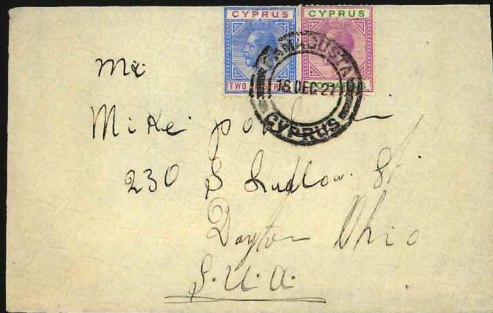 CYPRUS CYPRUS
TWO
FAMAGUSTA
15 DEC. 27
CYPRUS
Mr
Mike
230 S Ludlow St
Dayton Ohio
S.U.A.